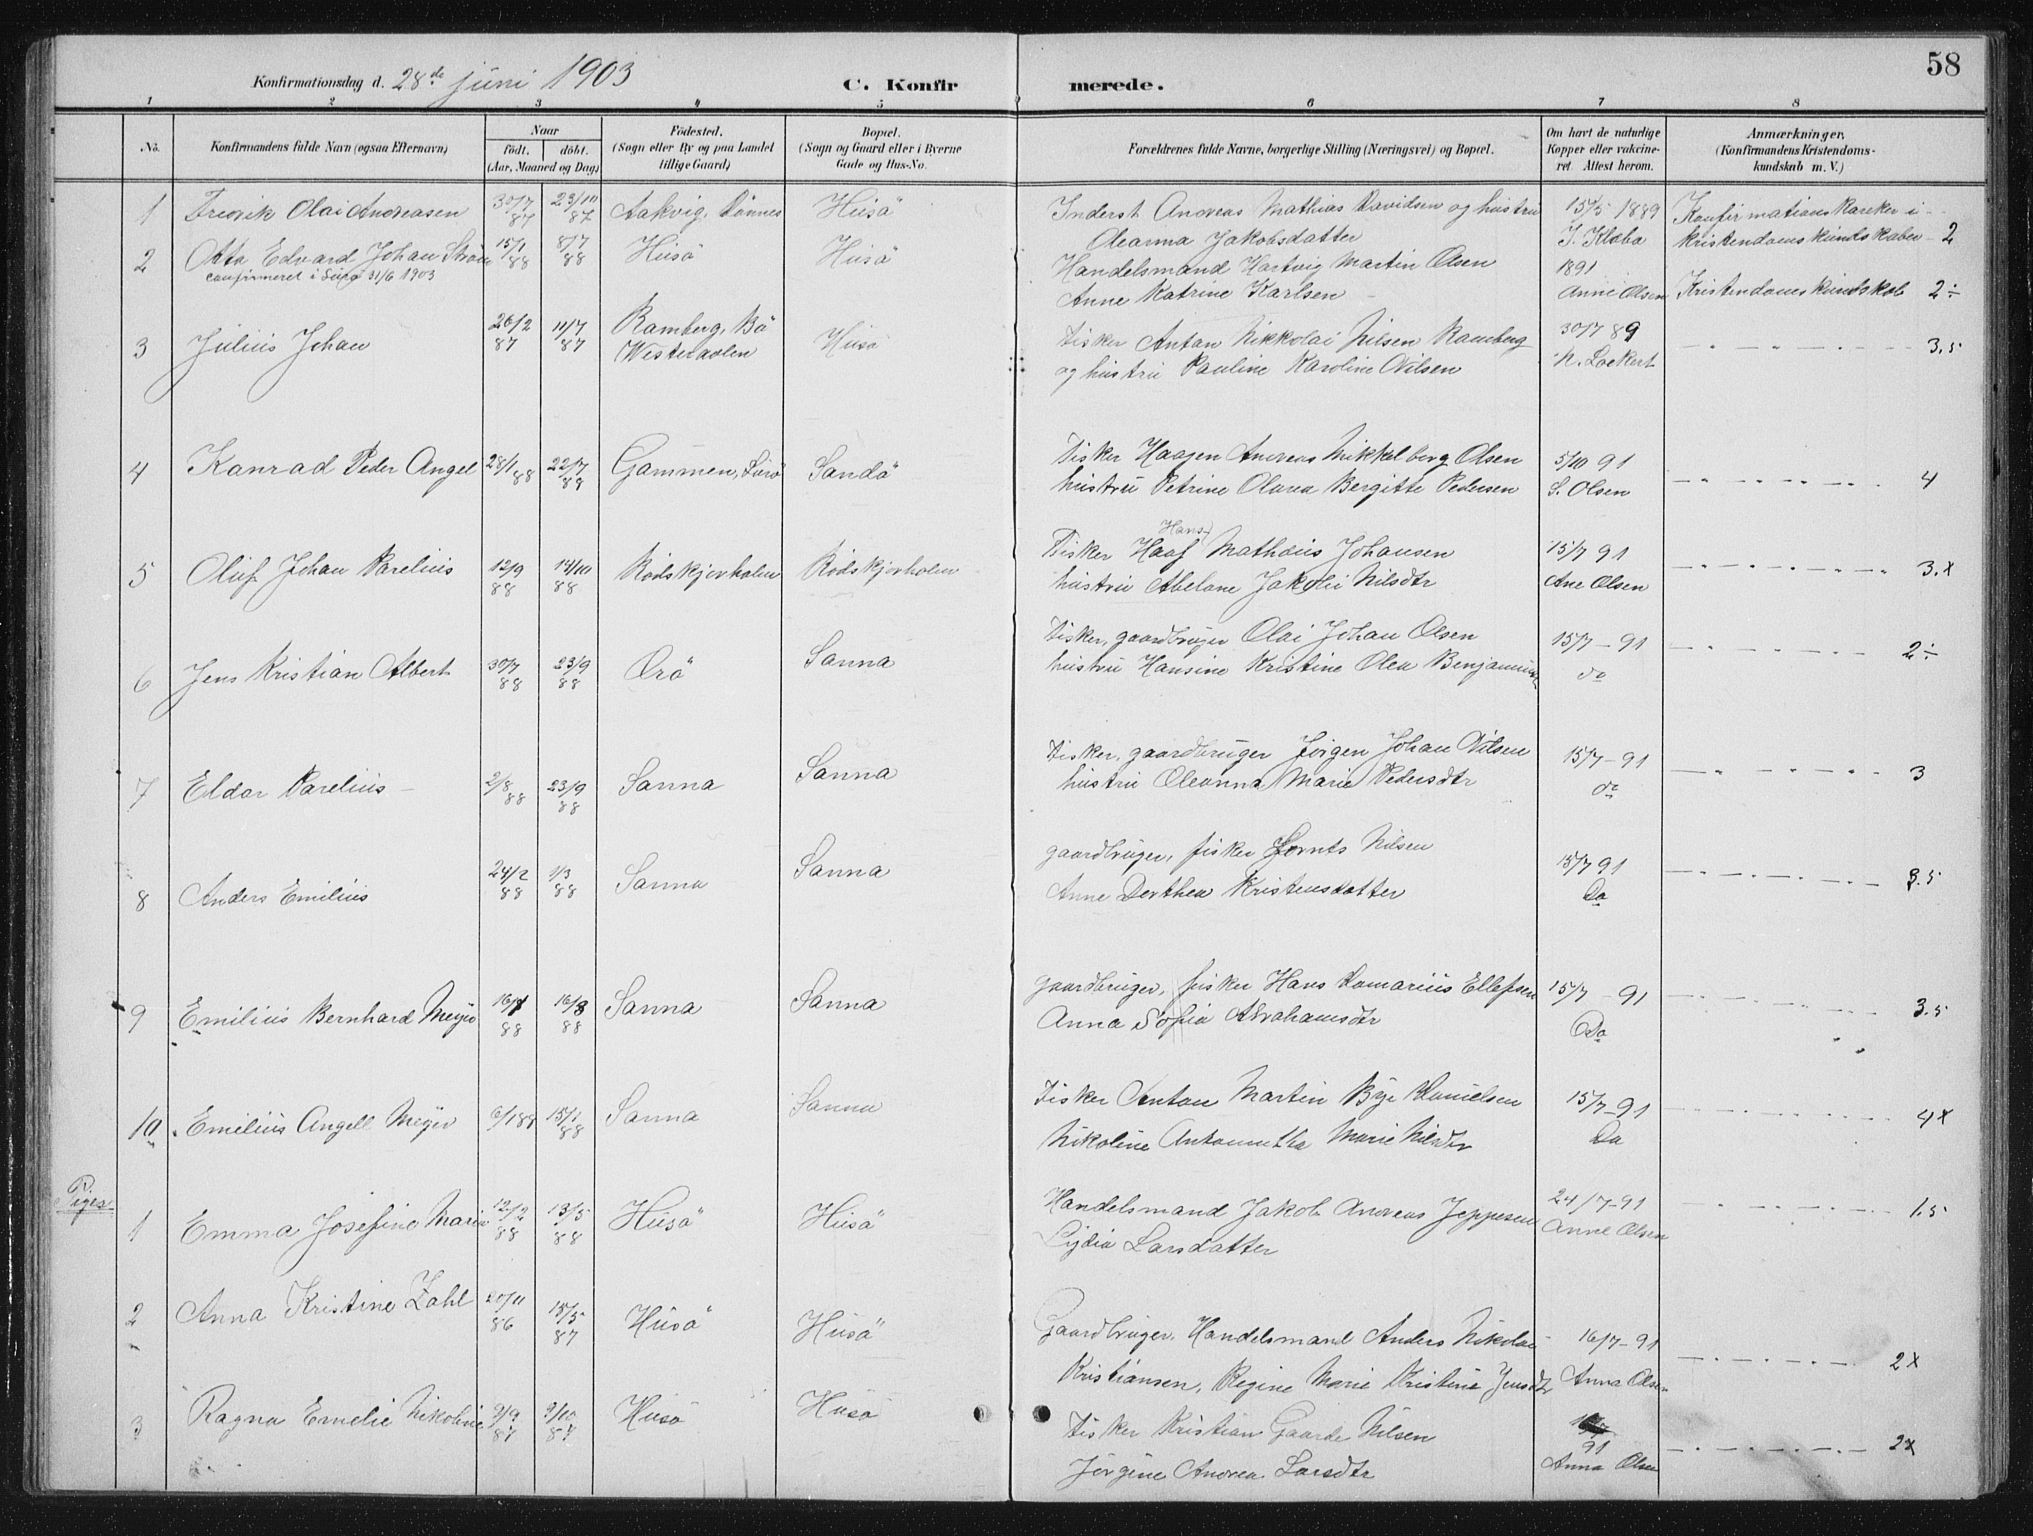 58
Konfirmationsdag d. 28de juni 1903 C. Konfirmerede.
1 2 3 4 5 6 7 8
No. Konfirmandens fulde Navn (ogsaa Efternavn) Naar født. døbt. (Aar, Maaned og Dag) Fødested. (Sogn eller By og paa Landet tillige Gaard) Bopæl. (Sogn og Gaard eller i Byerne Gade og Hus-No. Forældrenes fulde Navne, borgerlige Stilling (Næringsvei) og Bopæl. Om havt de naturlige Kopper eller vakcineret Attest herom. Anmærkninger. (Konfirmandens Kristendomskundskab m. V.)
1 Fredrik Olai Andreasen 30/7 87 23/10 87 Aakvig, Dønnes Husö Inderst Andreas Mathias Davidsen og hustru 15/5 1889 Konfirmations kareker i
Oleanna Jakobsdatter J. Klæbo kristendomskundskaben 2
2 Otto Edvard Johan Strøm 15/1 88 8/7 88 Husö Husö Handelsmand Hartvig Martin Olsen 1891
confirmeret i 31/6 1903 Anne Katrine Karlsen Anne Olsen Kristendomskundskab 2÷
3 Julius Johan 26/2 87 11/7 87 Ramberg, Bö Husö Fisker Antan Nikkolai Nilsen Ramberg 30/7 89 3.5
Westeraalen og hustru Pauline Karoline Nilsen N. Lockert
4 Konrad Peder Angel 28/1 88 22/7 88 Gammen, Sandö Fisker Haagen Andreas Mikkelborg Olsen 5/10 91
hustru Petrine Olava Bergitte Pedersen S. Olsen 4
Hans
5 Oluf Johan Parelius 12/9 88 14/10 88 Rödskjærholen Rödskjærholen Fisker Haaf Mathæus Johansen 15/7 91 3.x
hustru Abelone Jakobi Nilsdtr Ane Olsen
6 Jens Kristian Albert 30/7 88 23/9 88 Örö Sanna Fisker, gaardbruger Olai Johan Olsen 15/7-91 2÷
hustru Hansine Kristine Olea Benjamins do
7 Eldor Parelius 2/8 88 23/9 88 Sanna Sanna Fisker, gaardbruger Jörgen Johan Nilsen 15/7-91 3
hustru Oleanna Marie Pedersdtr do
8 Anders Emilius 24/2 88 1/3 88 Sanna Sanna gaardbruger, fisker Nilsen 15/7 91 3.5
Anne Dorthea Kristensdatter Do
9 Emilius Bernhard Meyer 16/1 88 16/3 88 Sanna Sanna gaardbruger, fisker Hans Damarius Ellefsen 15/7-91 3.5
Anna Sofia Abrahamsdtr Do
10 Emilius Angell Meyer 6/1 88 15/1 88 Sanna Sanna Fisker Anton Martin Bye Danielsen 15/7-91 4x
Nikoline Marie Nilsdtr Do
Piger
1 Emma Josefine Marie 12/2 88 13/5 88 Husö Husö Handelsmand Jakob Andreas Jeppesen 24/7-91 1.5
Lydia Larsdatter Anne Olsen
2 Anna Kristine Zahl 20/11 86 15/5 87 Husö Husö Gaardbruger, Handelsmand Anders Nikolai 16/7-91
Kristiansen, Regine Marie Kristine Jensdtr Anna Olsen 2x
3 Ragna Emelie Nikoline 9/9 87 9/10 87 Husö Husö Fisker Kristian Gaarde Nilsen 91 2x
Jörgine Andrea Larsdtr Anna Olsen